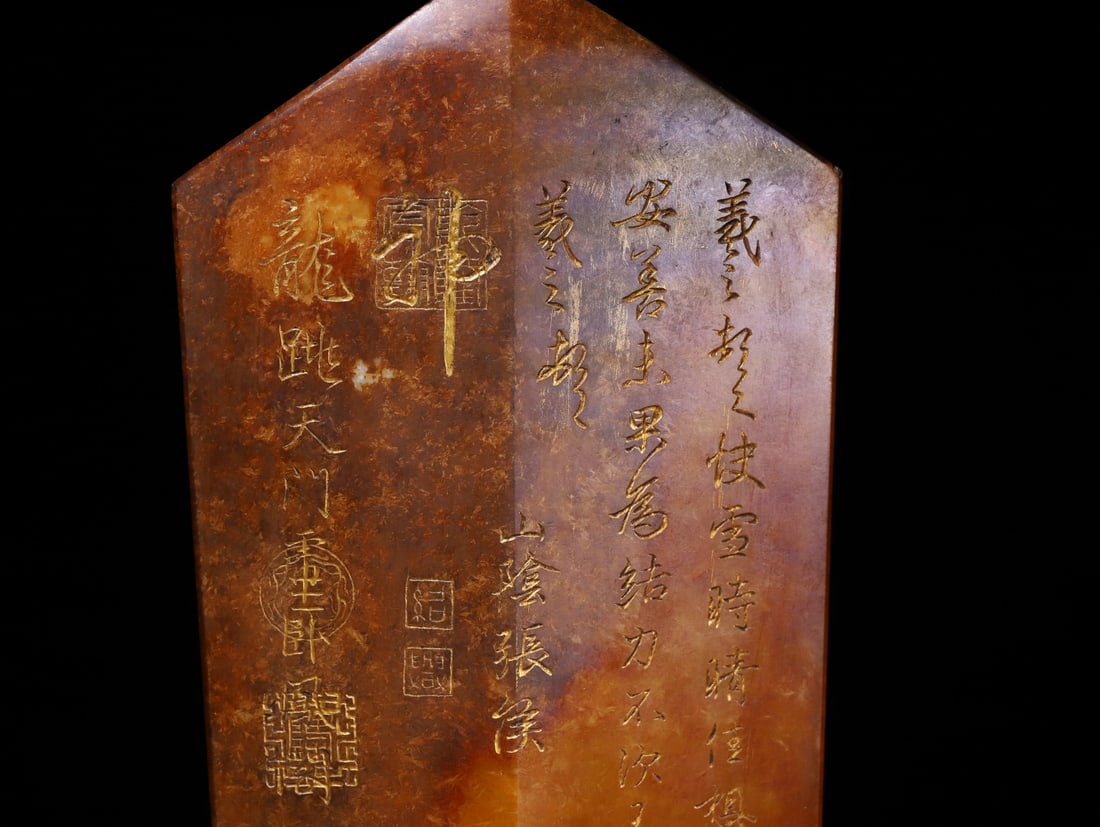 羲之頓首快雪時晴佳想
安善未果為結力不次
羲之頓首
山陰張侯
神
紹
興
龍跳天門虎臥鳳